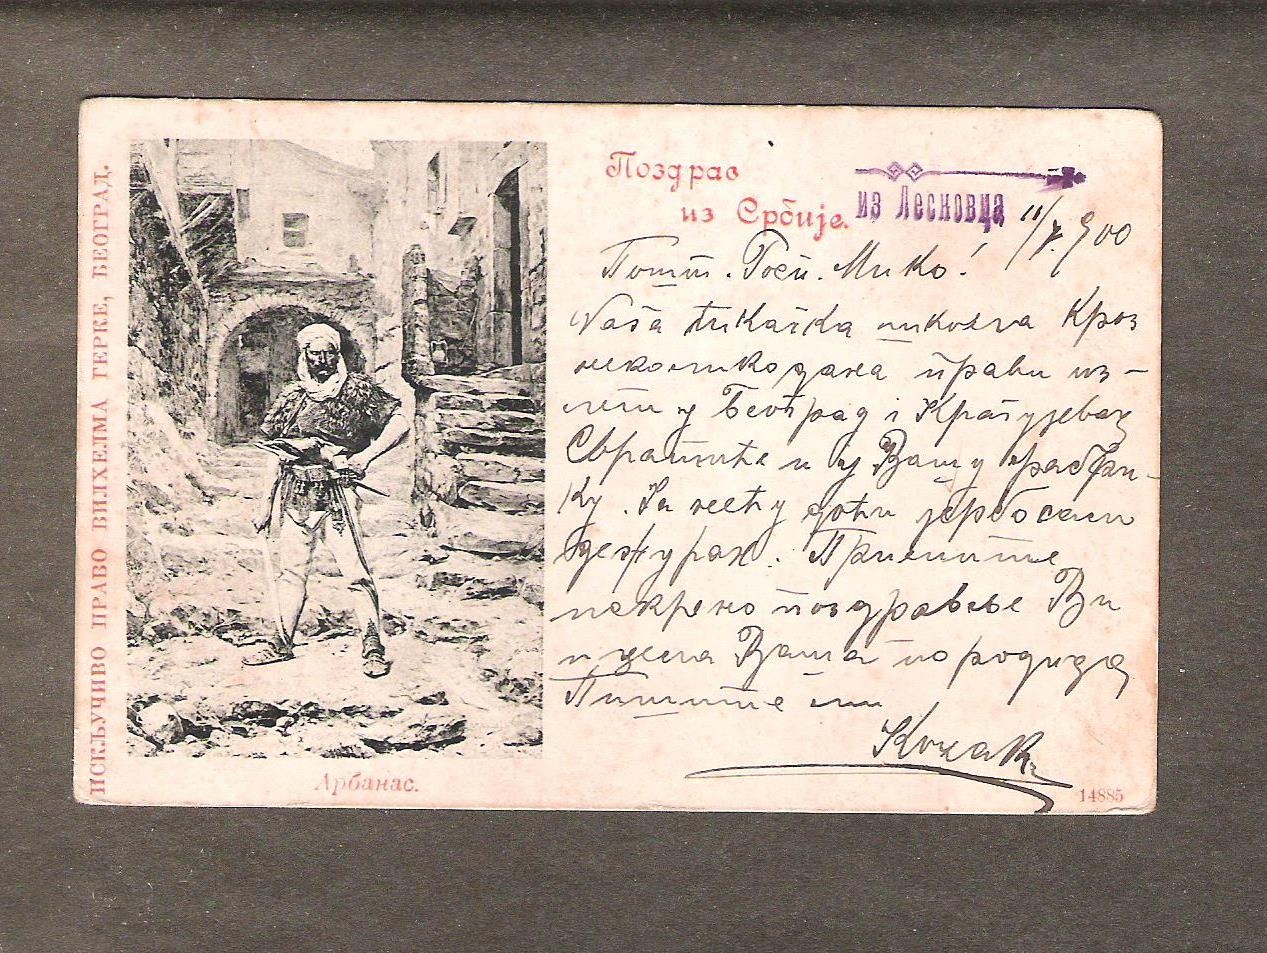 ИСКЉУЧИВО ПРАВО ВИЛХЕЛМА ГЕРКЕ, БЕОГРАД.
Поздрав
из Србије.
из Лесковца
11/7 900
Пошт. Госп. Мико!
Наша школска кроз
неколико дана прави из-
лет у Београд и Крагујевац
Свратиће и у Вашу фабри-
ку. Ја нећу доћи јербо сам
дежуран. Примите
искрено поздравље Ви
и цела Ваша породица
Пишите ми
Арбанас.
14885